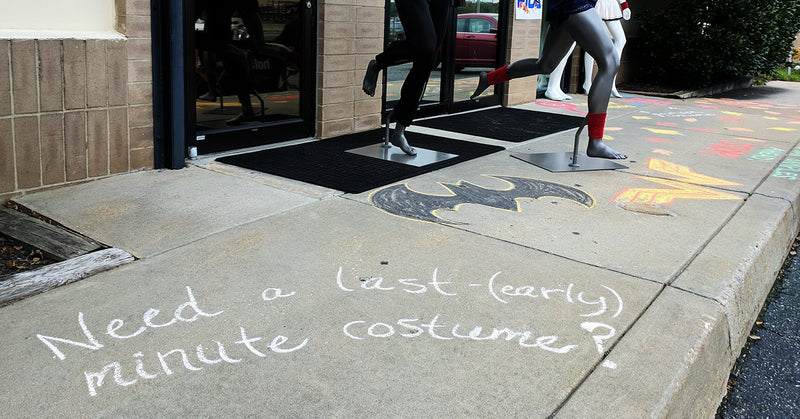 Need a last-(early)
minute costume?